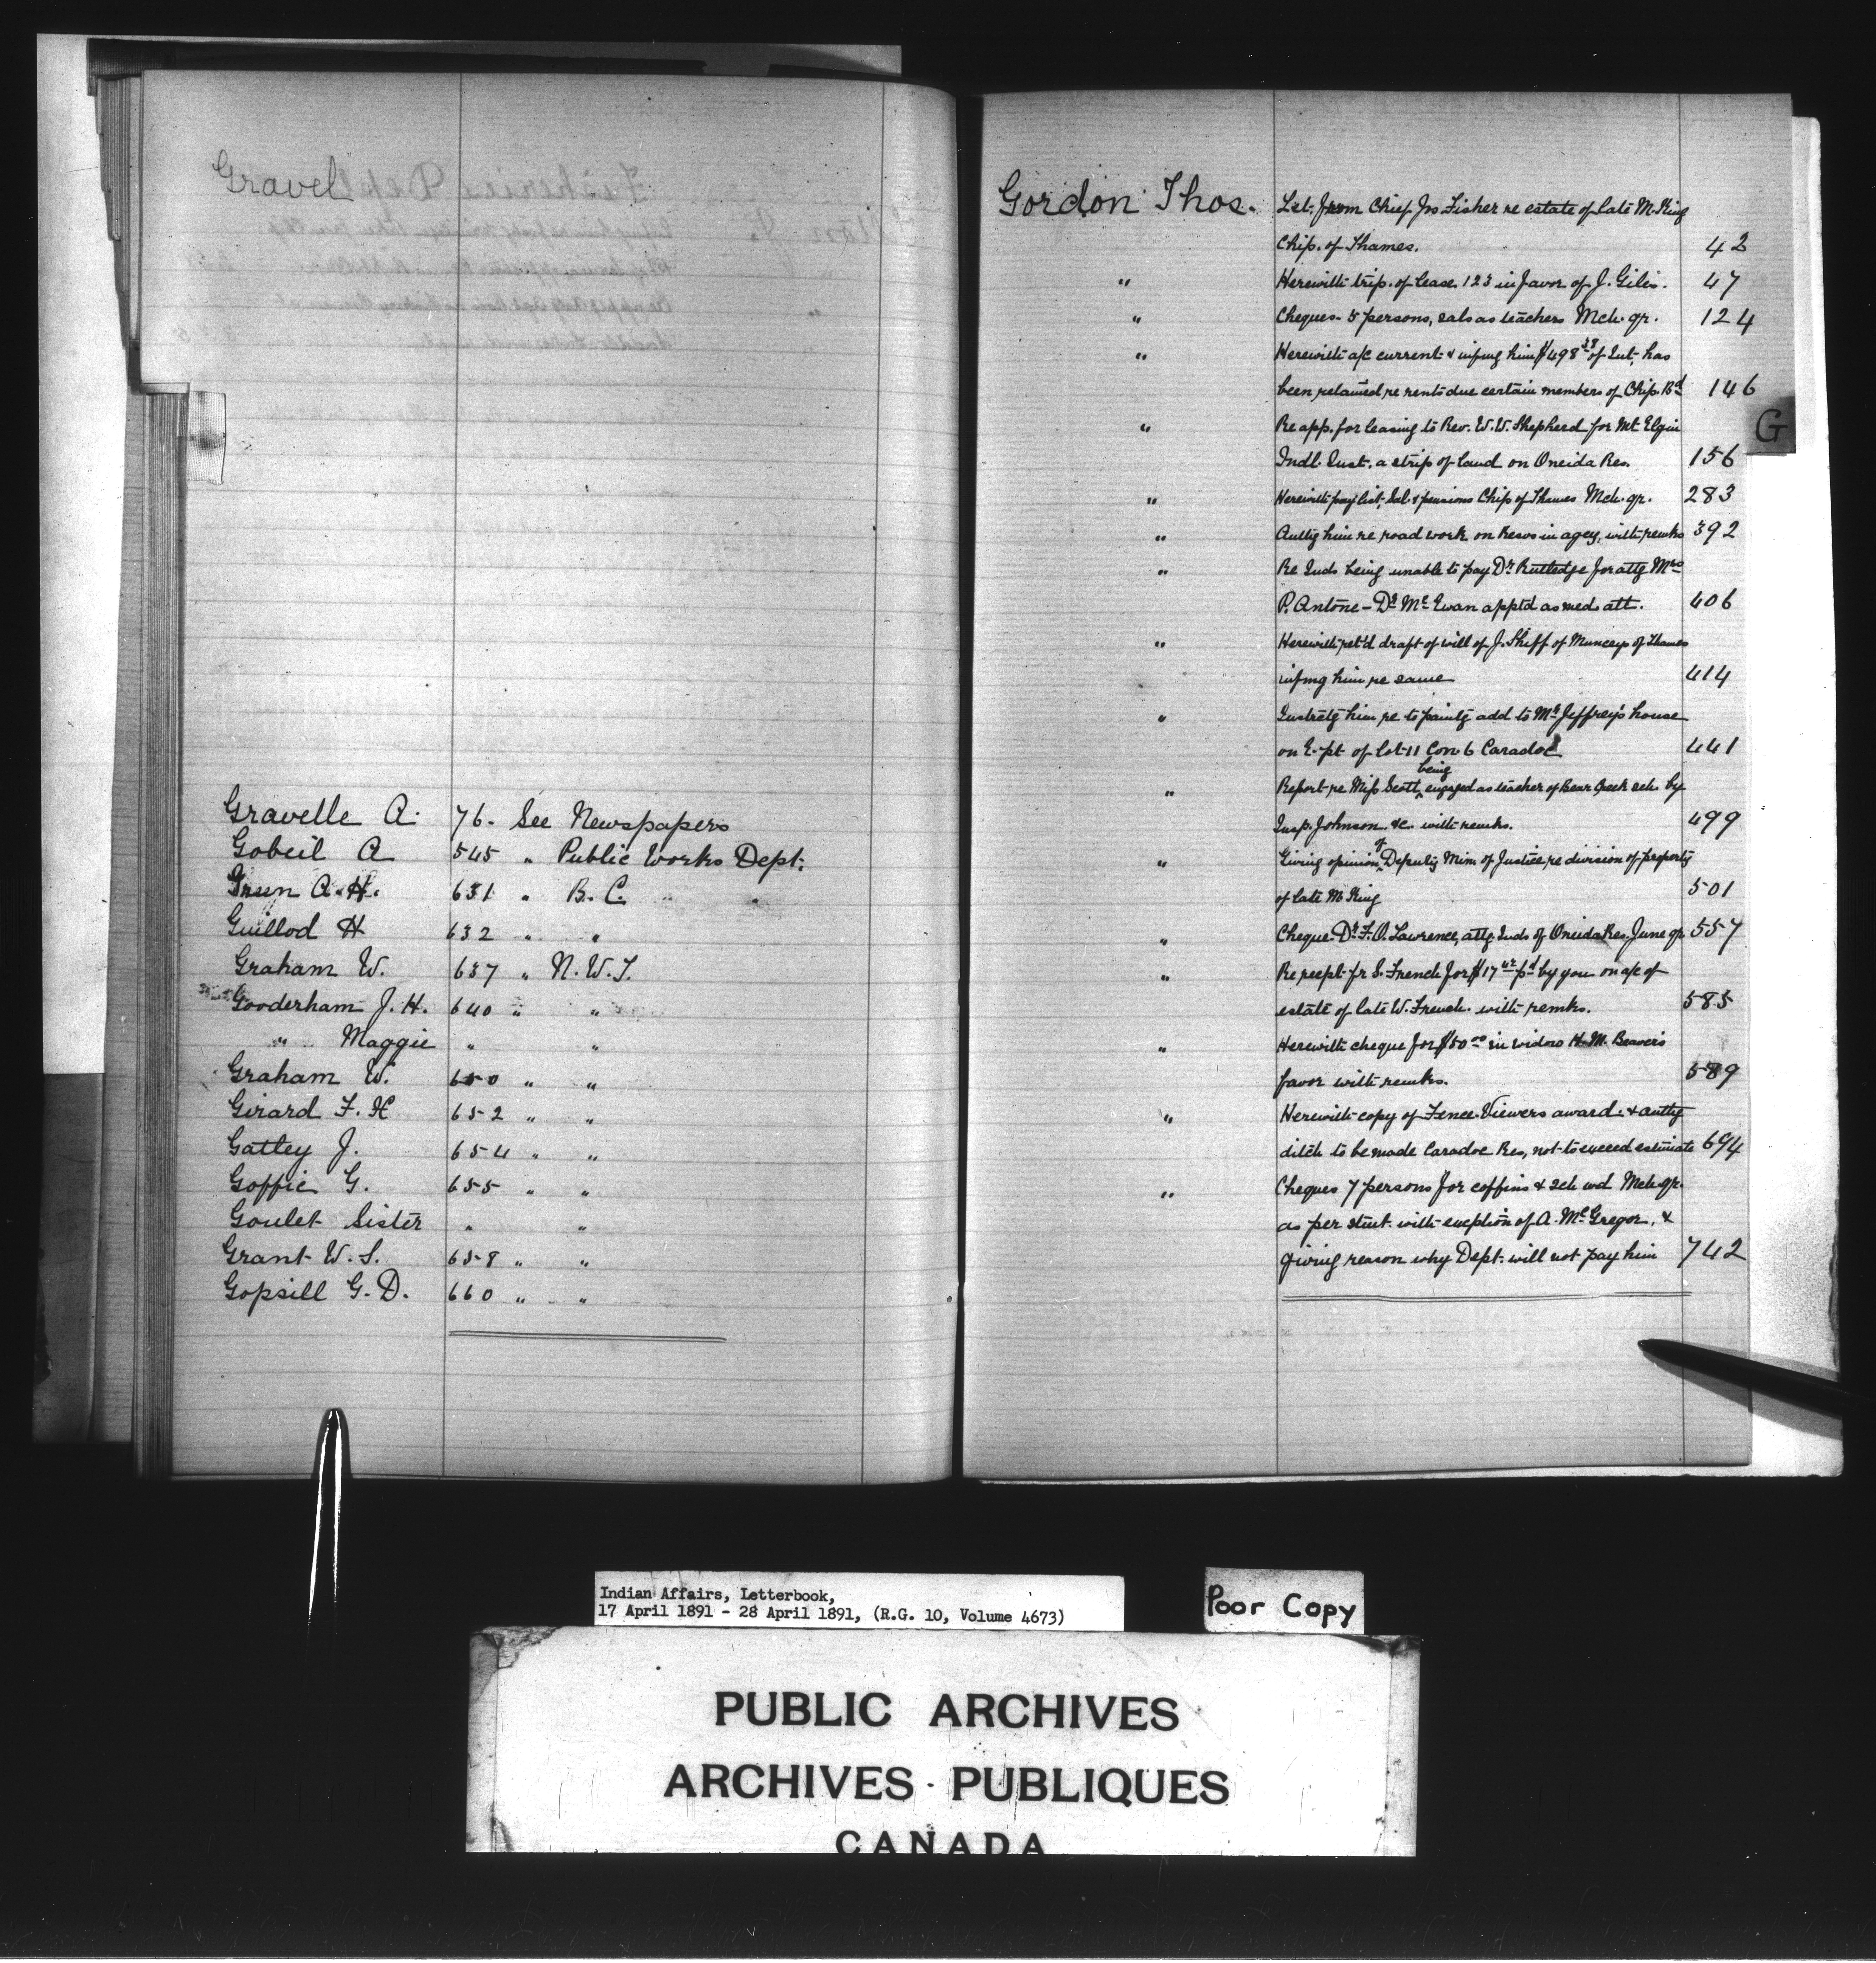 Gravel
Gravelle A. 76. See Newspapers
Gobeil A 545 " Public Works Dept.
Green A. H. 631 " B. C.
Guillod H 632 " "
Graham W. 637 " N. W. T.
Gooderham J. H. 640 " "
" Maggie " "
Graham W. 650 " "
Girard F. H 652 " "
Gatley J. 654 " "
Goffic G. 655 " "
Goulet Sister " "
Grant W. S. 658 " "
Gopsill G. D. 660 " "
Gordon Thos. Let. from Chief Jno Fisher re estate of late M. King
Chip. of Thames. 42
" Herewith trip. of lease 123 in favor of J. Giles. 47
" Cheques - 5 persons, sals as teachers Mch. qr. 124
" Herewith a/c current & infmg him $498 38 of Int. has
been retained re rents due certain members of Chip. Bd 146
" Re app. for leasing to Rev. W. W. Shepherd for Mt Elgin
Indl. Inst. a strip of land on Oneida Res. 156
" Herewith pay list, Sal. & pensions Chip of Thames Mch. qr. 283
" Authg him re road work on Resvs in agcy, with remks 392
" Re Inds being unable to pay Dr Rutledge for attg Mrs
P. Antone - Dr McEwan apptd as med. att. 406
" Herewith ret'd draft of will of J. Shiff of Munceys of Thames
infmg him re same 414
" Instrctg him re to paintg add to Mr Jeffrey's house
on E. pt of Lot 11 Con. 6 Caradoc 441
" Report re Miss Scott being engaged as teacher of Bear Creek sch. by
Insp. Johnson &c. with remks. 499
" Giving opinion of Deputy Min of Justice re division of property
of late M King 501
" Cheque Dr F. O. Lawrence, attg. Inds of Oneida Res. June qr 557
" Re recpt fr S. French for $17 42 pd by you on a/c of
estate of late W. French. with remks. 585
" Herewith cheque for $50 00 in widow H. M. Beavers
favor with remks. 589
" Herewith copy of Fence Viewers award & authg
ditch to be made Caradoc Res, not to exceed estimate 694
" Cheques 7 persons for coffins & sch wd Mch. qr.
as per stmt. with exception of A. McGregor, &
giving reason why Dept. will not pay him 742
G
Indian Affairs, Letterbook,
17 April 1891 - 28 April 1891, (R.G. 10, Volume 4673)
Poor Copy
PUBLIC ARCHIVES
ARCHIVES PUBLIQUES
CANADA